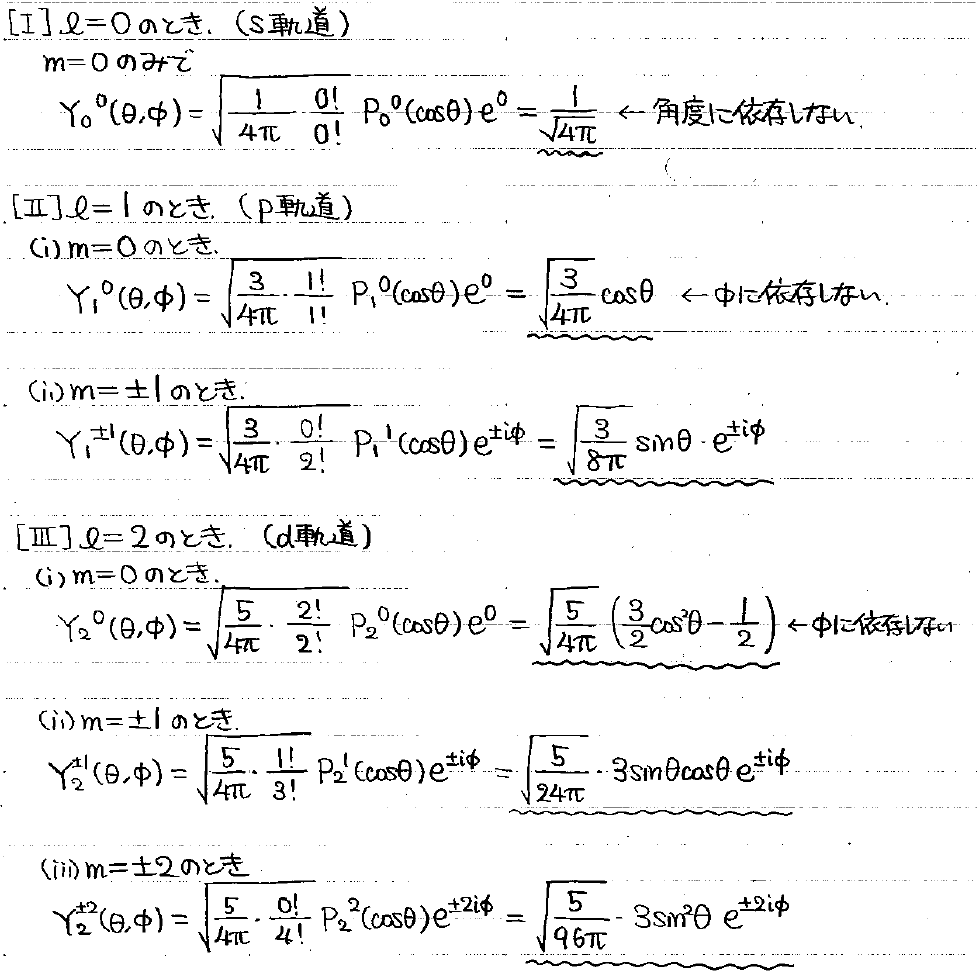 [I] ℓ=0のとき. (s軌道)
m=0のみで
Y₀⁰(θ,φ) = √(1/4π · 0!/0!) P₀⁰(cosθ) e⁰ = 1/√4π ← 角度に依存しない.
[II] ℓ=1のとき. (p軌道)
(i) m=0のとき.
Y₁⁰(θ,φ) = √(3/4π · 1!/1!) P₁⁰(cosθ) e⁰ = √(3/4π) cosθ ← φに依存しない.
(ii) m=±1のとき.
Y₁^±1(θ,φ) = √(3/4π · 0!/2!) P₁¹(cosθ) e^±iφ = √(3/8π) sinθ · e^±iφ
[III] ℓ=2のとき. (d軌道)
(i) m=0のとき.
Y₂⁰(θ,φ) = √(5/4π · 2!/2!) P₂⁰(cosθ) e⁰ = √(5/4π) (3/2 cos²θ − 1/2) ← φに依存しない
(ii) m=±1のとき.
Y₂^±1(θ,φ) = √(5/4π · 1!/3!) P₂¹(cosθ) e^±iφ = √(5/24π) · 3sinθcosθ e^±iφ
(iii) m=±2のとき
Y₂^±2(θ,φ) = √(5/4π · 0!/4!) P₂²(cosθ) e^±2iφ = √(5/96π) · 3sin²θ e^±2iφ